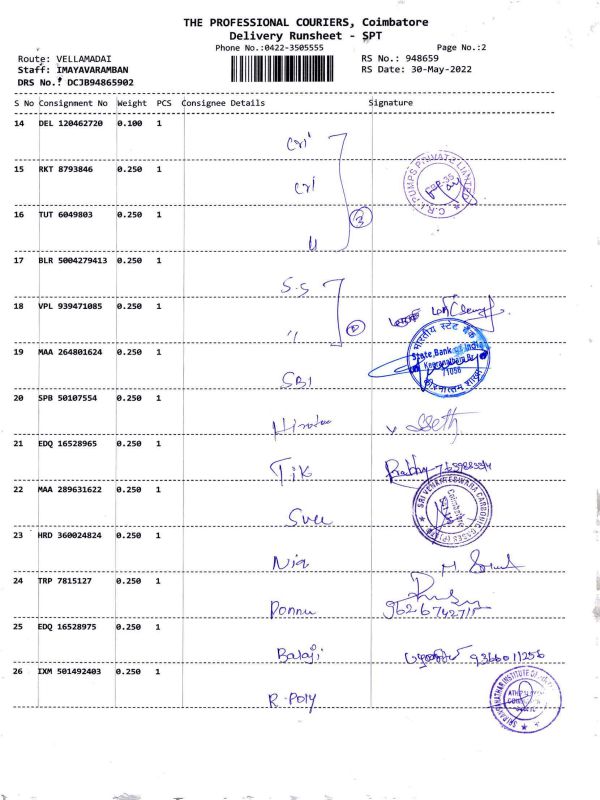 THE PROFESSIONAL COURIERS, Coimbatore
Delivery Runsheet - SPT
Phone No.:0422-3505555
Page No.:2
Route: VELLAMADAI
RS No.: 948659
Staff: IMAYAVARAMBAN
RS Date: 30-May-2022
DRS No.: DCJB94865902
S No Consignment No Weight PCS Consignee Details Signature
14 DEL 120462720 0.100 1 cri
15 RKT 8793846 0.250 1 cri
C.R.I. PUMPS PRIVATE LIMITED
16 TUT 6049803 0.250 1 "
3
17 BLR 5004279413 0.250 1 S.S
18 VPL 939471085 0.250 1 "
2
19 MAA 264801624 0.250 1 SBI
भारतीय स्टेट बैंक
State Bank of India
20 SPB 50107554 0.250 1
21 EDQ 16528965 0.250 1 Tik
22 MAA 289631622 0.250 1 Svee
SRI VENKATESWARA CARBONIC GASES (P) LTD
Coimbatore
23 HRD 360024824 0.250 1 Nia
24 TRP 7815127 0.250 1 Ponnu
9626742711
25 EDQ 16528975 0.250 1 Balaji 9366011256
26 IXM 501492403 0.250 1 R-Poly
SRI RANGANATHAR INSTITUTE OF